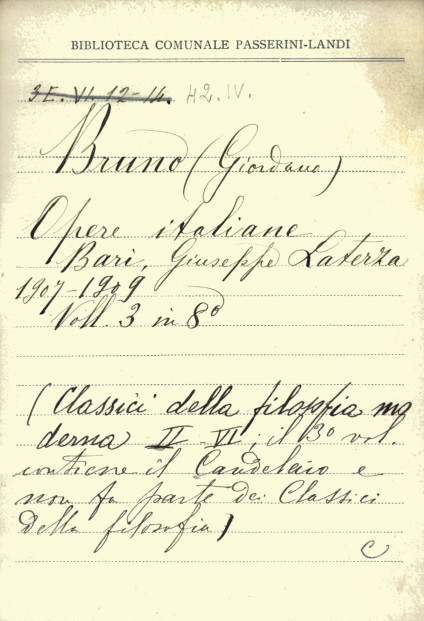 BIBLIOTECA COMUNALE PASSERINI-LANDI
3E. VI. 12-14. 42.IV.
Bruno (Giordano)
Opere italiane
Bari, Giuseppe Laterza
1907-1909
Voll. 3 in 8º
(Classici della filosofia mo
derna II-VI; il 3º vol.
contiene il Candelaio e
non fa parte dei Classici
della filosofia)
C